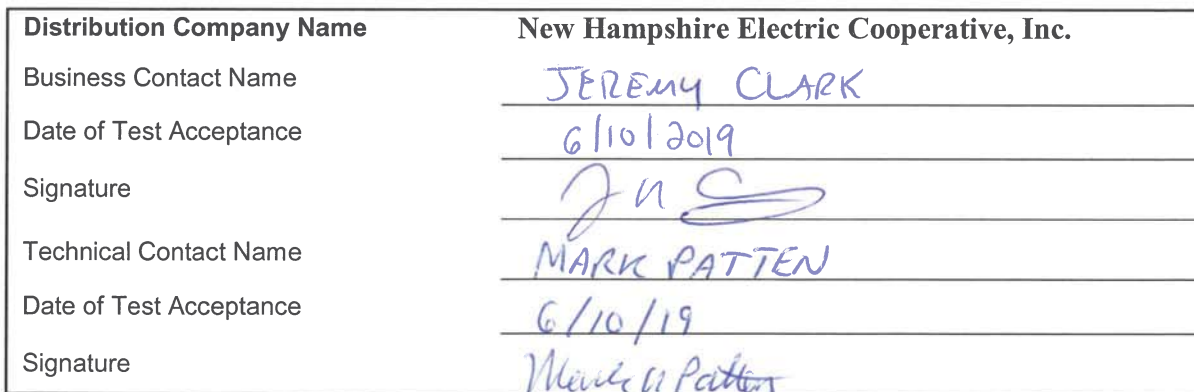 Distribution Company Name New Hampshire Electric Cooperative, Inc.
Business Contact Name JEREMY CLARK
Date of Test Acceptance 6/10/2019
Signature
Technical Contact Name MARK PATTEN
Date of Test Acceptance 6/10/19
Signature Mark N Patten